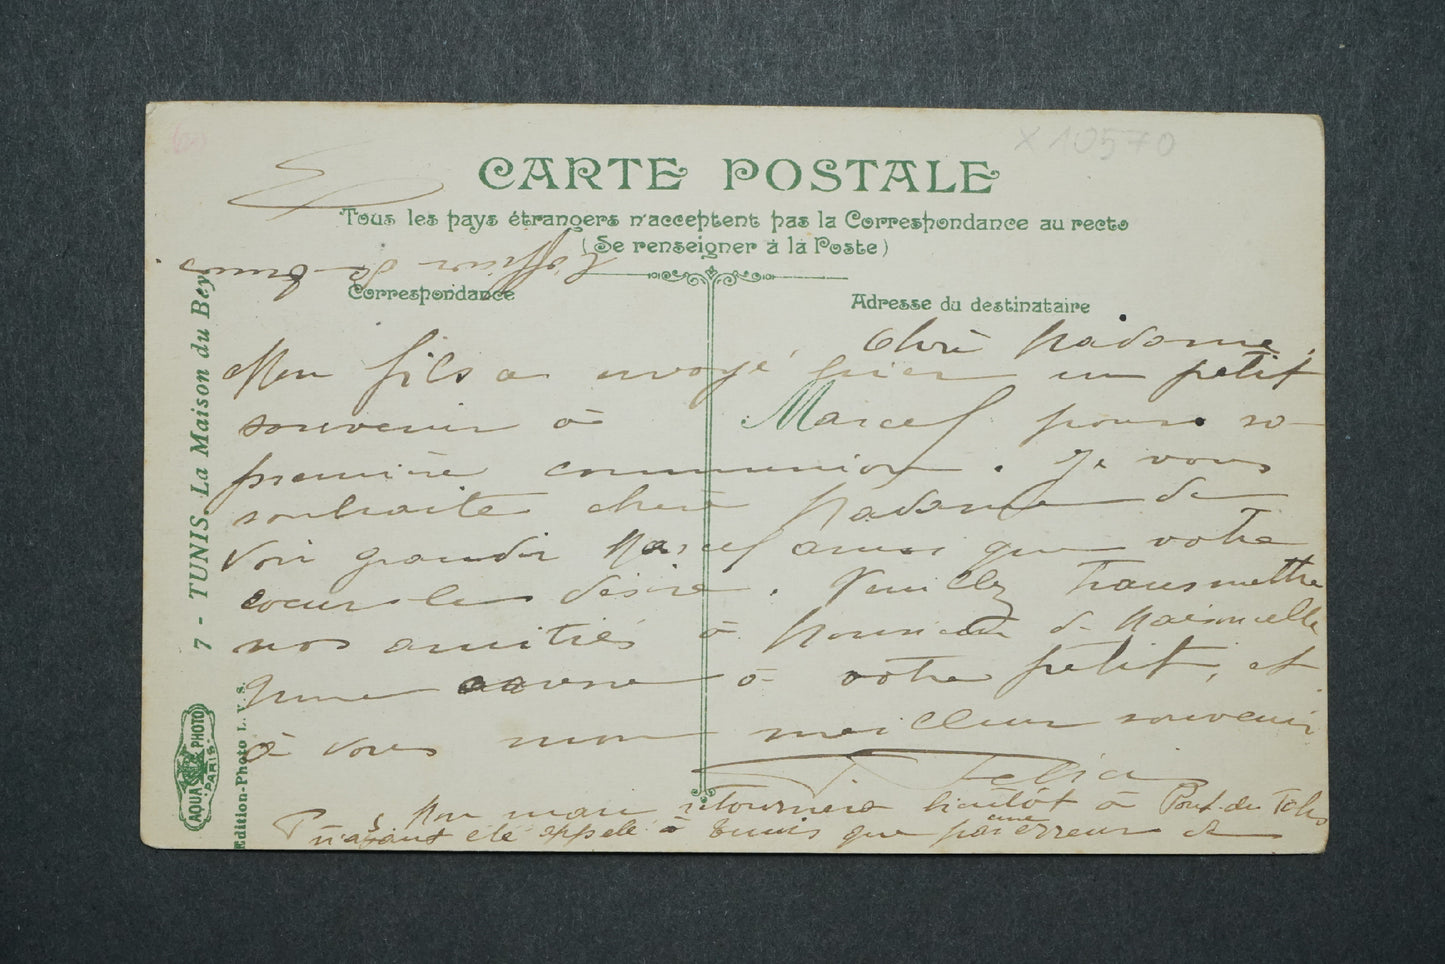 X 10570
CARTE POSTALE
Tous les pays étrangers n'acceptent pas la Correspondance au recto
(Se renseigner à la Poste)
Correspondance
Adresse du destinataire
Chère Madame,
Mon fils a envoyé hier un petit
souvenir à Marcel pour sa
première communion. Je vous
souhaite chère Madame de
voir grandir Marcel ainsi que votre
cœur le désire. Veuillez transmettre
nos amitiés à Monsieur
à votre petit, et
à vous mon meilleur souvenir
Felia
P.S. Mon mari retournera bientôt à Pont-du-Fahs
n'ayant été appelé à Tunis que par une erreur de
l'officier de Tunis
7 - TUNIS. La Maison du Bey
AQUA PHOTO
PARIS
Edition-Photo L. V. S.